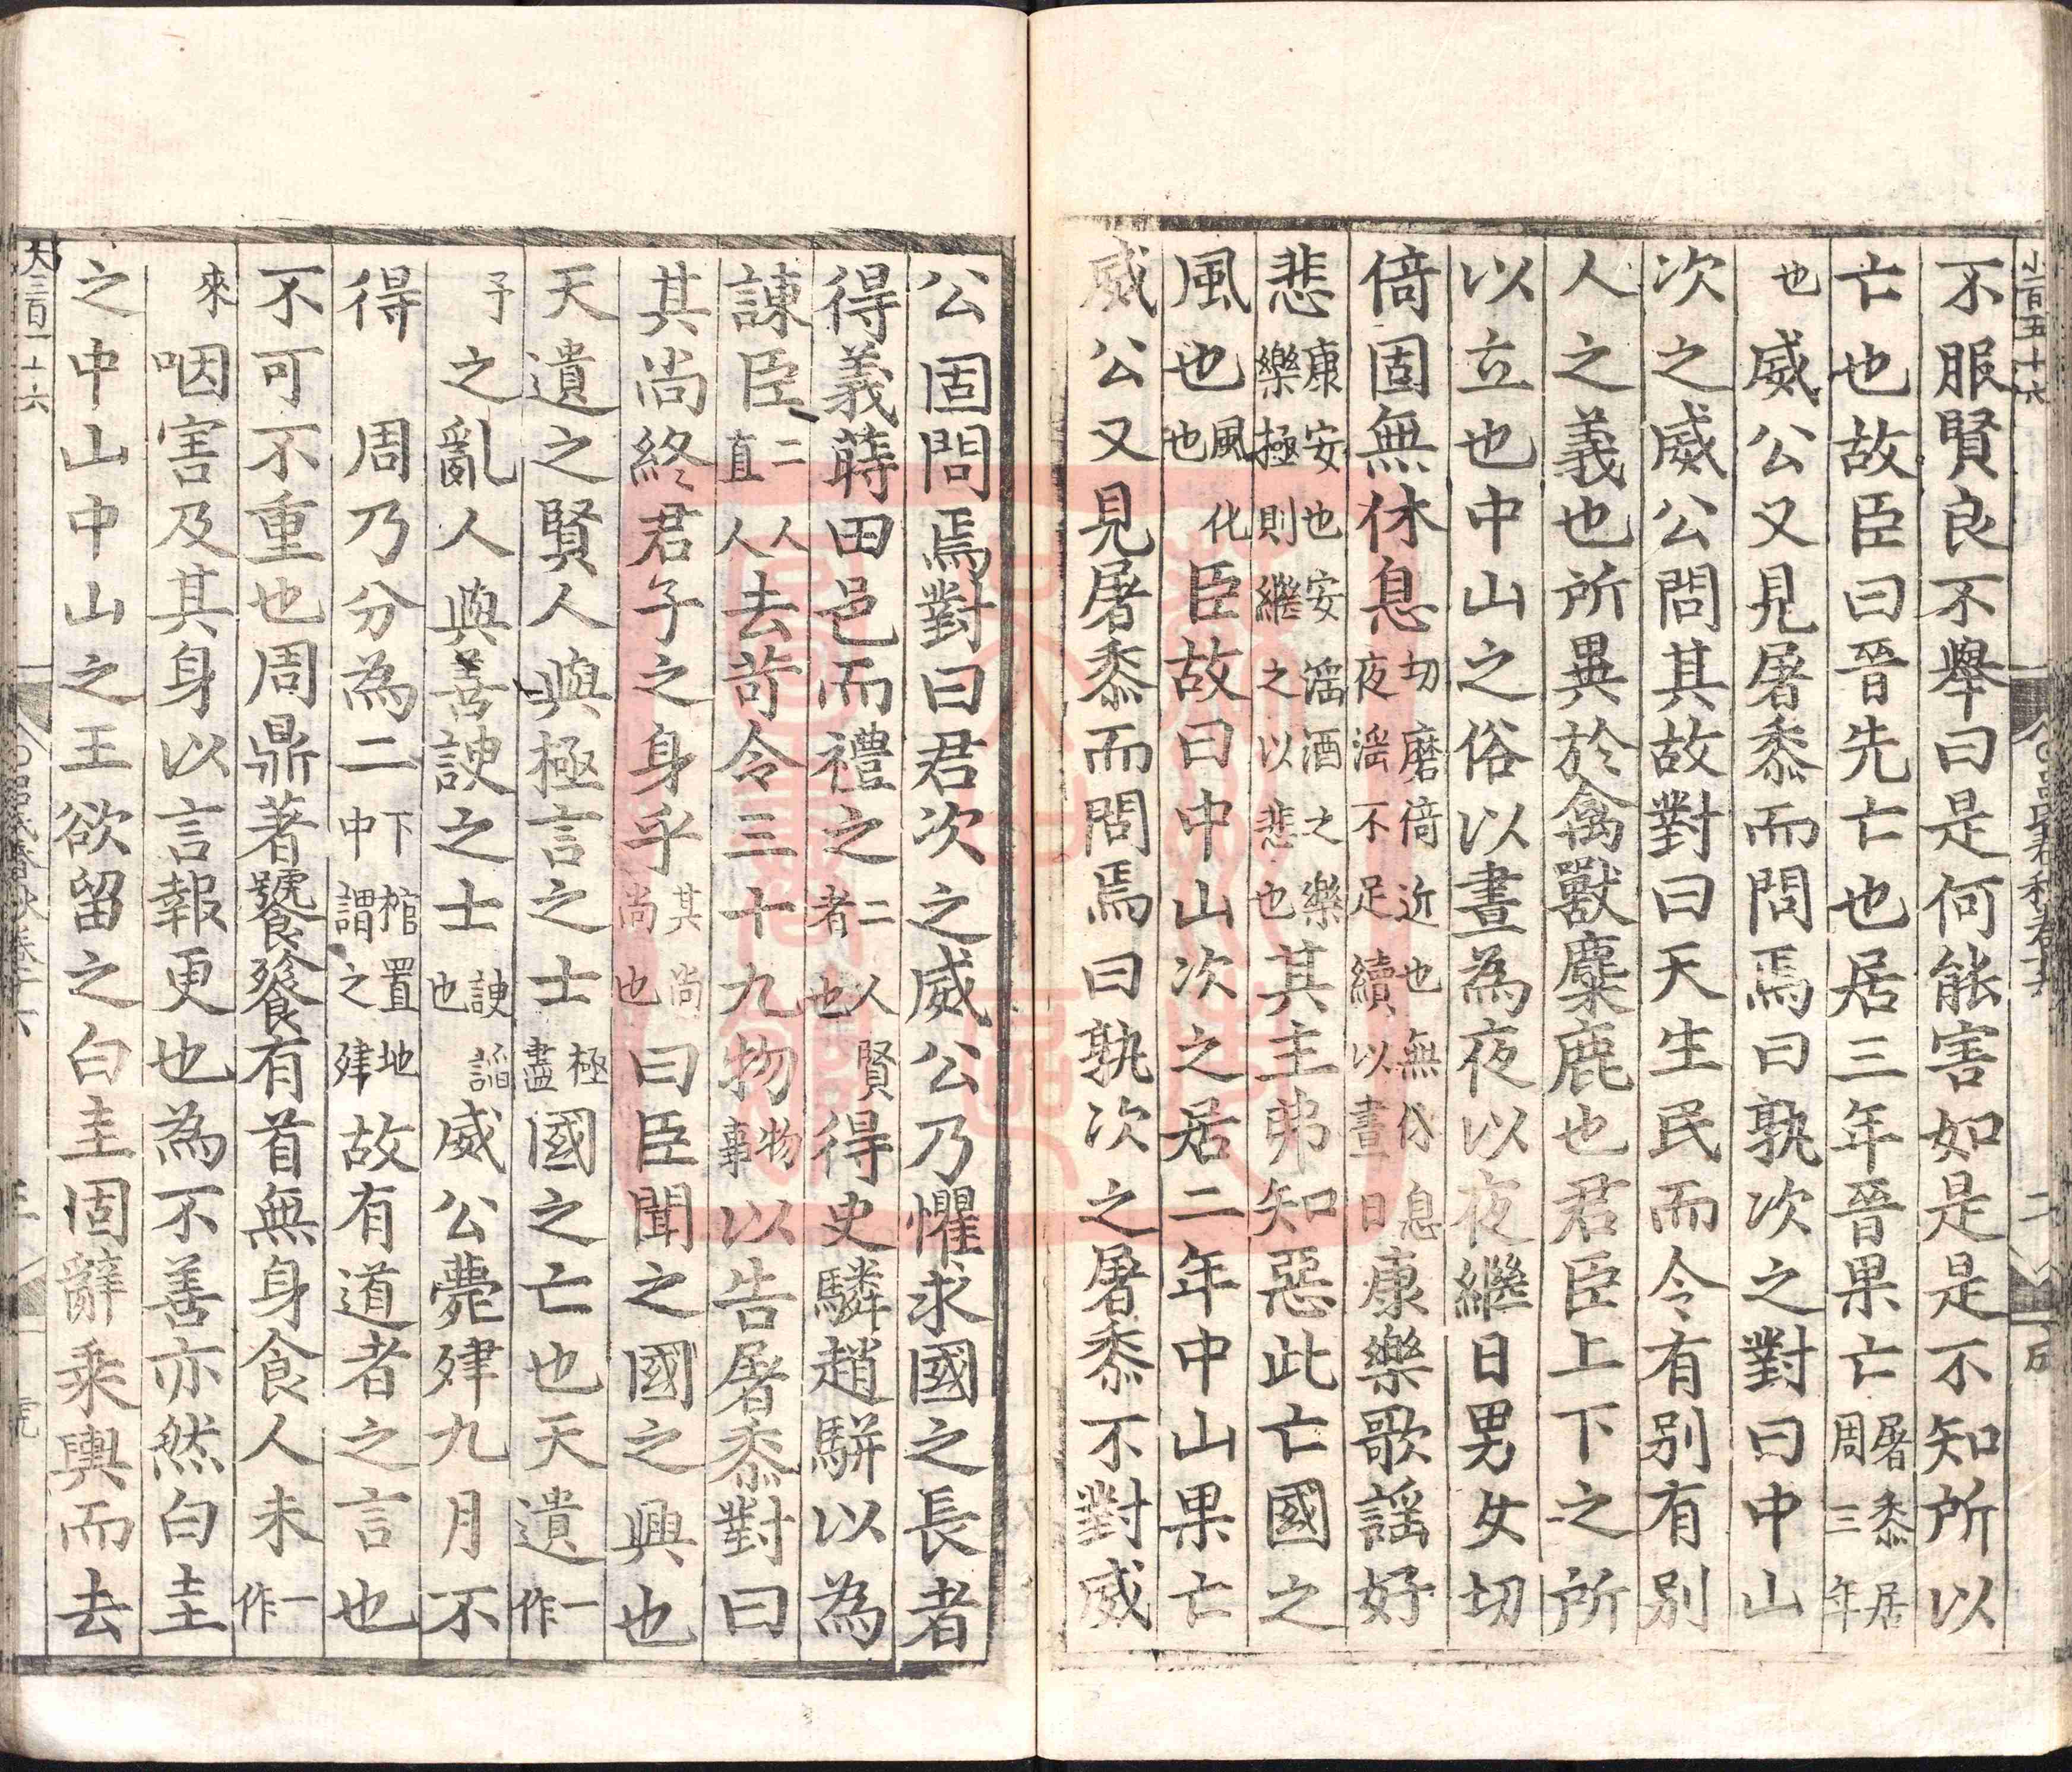 不服賢良不舉曰是何能害如是是不知所以
亡也故臣曰晉先亡也居三年晉果亡屠黍居周三年
也威公又見屠黍而問焉曰孰次之對曰中山
次之威公問其故對曰天生民而令有別有別
人之義也所異於禽獸麋鹿也君臣上下之所
以立也中山之俗以晝為夜以夜繼日男女切
倚固無休息切磨倚近也無休息夜淫不足續以晝日康樂歌謠好
悲康安安也安淫酒之樂樂極則繼之以悲也其主弗知惡此亡國之
風也風化也臣故曰中山次之居二年中山果亡
威公又見屠黍而問焉曰孰次之屠黍不對威
公固問焉對曰君次之威公乃懼求國之長者
得義蒔田邑而禮之二人賢者也得史驎趙駢以為
諫臣二人直人去苛令三十九物物事以告屠黍對曰
其尚終君子之身乎其尚尚也曰臣聞之國之興也
天遺之賢人與極言之士極盡國之亡也天遺一作
予之亂人與善諛之士諛諂也威公薨肂九月不
得周乃分為二下棺置地中謂之肂故有道者之言也
不可不重也周鼎著饕餮有首無身食人未一作
來咽害及其身以言報更也為不善亦然白圭
之中山中山之王欲留之白圭固辭乘輿而去